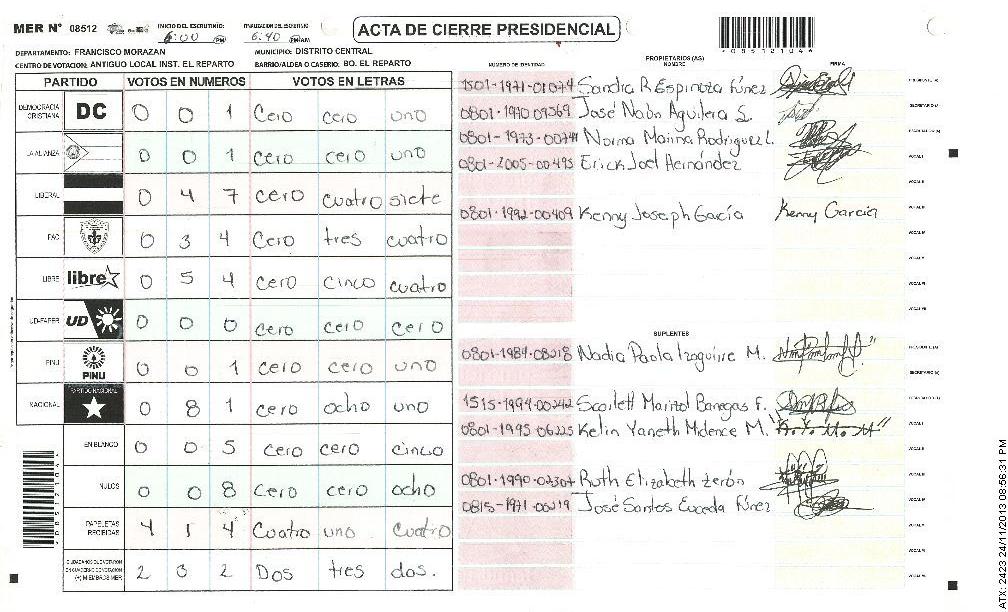 MER Nº 08512 INICIO DEL ESCRUTINIO: 6:00 PM FINALIZACION DEL ESCRUTINIO 6:40 PM/AM ACTA DE CIERRE PRESIDENCIAL
*085121046*
DEPARTAMENTO: FRANCISCO MORAZAN MUNICIPIO: DISTRITO CENTRAL
CENTRO DE VOTACION: ANTIGUO LOCAL INST. EL REPARTO BARRIO/ALDEA O CASERIO: BO. EL REPARTO
PARTIDO VOTOS EN NUMEROS VOTOS EN LETRAS
DEMOCRACIA CRISTIANA DC 0 0 1 Cero cero uno
LA ALIANZA 0 0 1 cero cero uno
LIBERAL 0 4 7 cero cuatro siete
PAC 0 3 4 Cero tres cuatro
LIBRE libre 0 5 4 Cero cinco cuatro
UD-FAPER UD 0 0 0 Cero cero cero
PINU PINU 0 0 1 cero cero uno
NACIONAL PARTIDO NACIONAL 0 8 1 cero ocho uno
EN BLANCO 0 0 5 cero cero cinco
NULOS 0 0 8 cero cero ocho
PAPELETAS RECIBIDAS 4 1 4 Cuatro uno cuatro
(+) MIEMBROS MER 2 3 2 Dos tres dos.
NUMERO DE IDENTIDAD PROPIETARIOS (AS) NOMBRE FIRMA
1501-1971-01074 Sandra R Espinoza Fúnez
0801-1990-09369 José Nabin Aguilera S. SECRETARIO (A)
0801-1973-00741 Norma Marina Rodriguez L.
0801-2005-00495 Erick Joel Hernández
0801-1992-00409 Kenny Joseph García Kenny Garcia
SUPLENTES
0801-1984-08218 Nadia Paola Izaguirre M.
SECRETARIO (A)
1515-1994-00242 Scarlett Marizol Banegas F.
0801-1995-06225 Kelin Yaneth Midence M. "K. Y. M. M"
0801-1990-07307 Ruth Elizabeth Zerón
0815-1971-00219 José Santos Euceda Fúnez
ATX: 2423 24/11/2013 08:56:31 PM